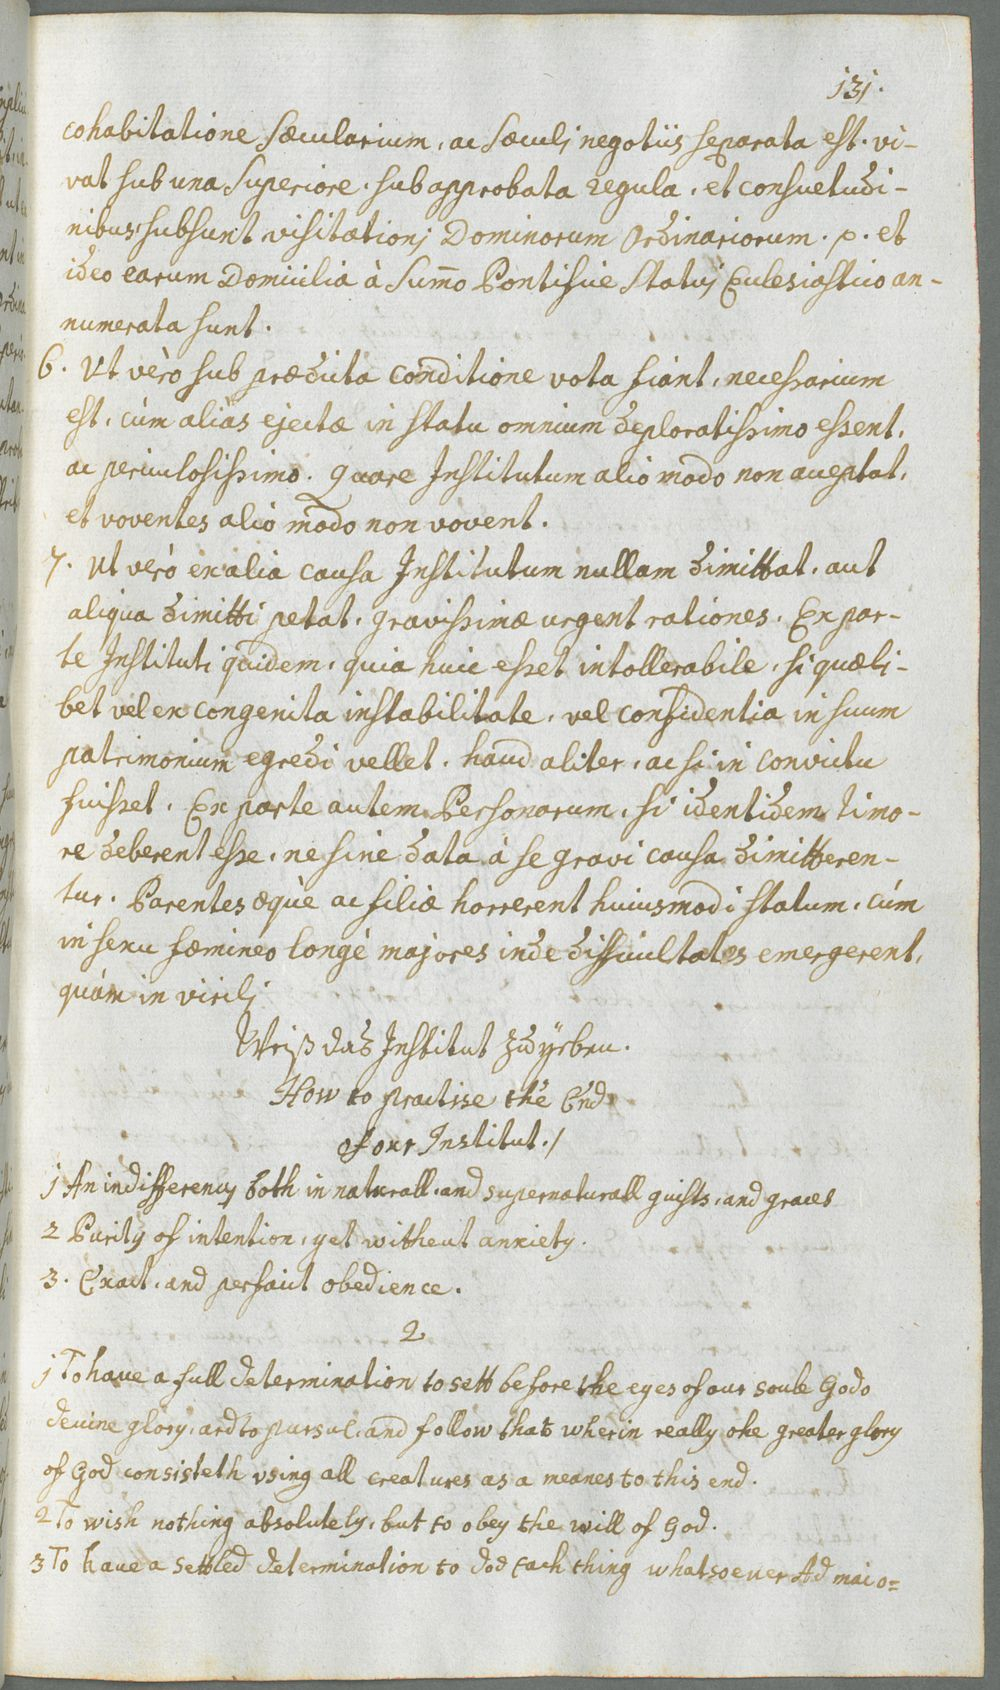 131.
cohabitatione Sæcularium, ac Sæculj negotiis separata est. vi-
vat sub una Superiore. sub approbata regula, et consuetudi-
nibus; subsunt visitationj Dominorum Ordinariorum. p. et
ideo earum Domicilia à Sum̄o Pontifice Statuj Eclesiastico an-
numerata sunt.
6. Ut vèrò sub prædicta conditione vota fiant, necessarium
est, cùm aliàs ejectæ in statu omnium deploratissimo essent,
ac periculosissimo. quare Institutum alio modo non acceptat,
et voventes alio modo non vovent.
7. Ut verò ex alia causa Institutum nullam dimittat, aut
aliqua dimitti petat, gravissimæ urgent rationes. Ex par-
te Instituti quidem, quia huic esset intollerabile, si quæli-
bet vel ex congenita instabilitate, vel confidentia in suum
patrimonium egredi vellet, haud aliter, ac si in convictu
fuisset. Ex parte autem Personarum, si identidem timo-
re deberent esse, ne sine data à se gravi causa dimitteren-
tur. Parentes æquè ac filiæ horrerent huiusmodi statum, cùm
in sexu fæmineo longè majores inde difficultates emergerent,
quàm in virilj
Weiß das Institut zu yeben.
How to practise the End
of our Institut./
1 An indifferency both in naturall, and supernaturall guifts, and graces
2 Purity of intention, yet without anxiety.
3. Exact, and perfaict obedience.
2
1 To have a full determination to sett before the eyes of our soule Gods
devine glory, and to pursue, and follow that wherin really the greater glory
of God consisteth vsing all creatures as a meanes to this end.
2 To wish nothing absolutely, but to obey the will of God.
3 To have a settled determination to doe each thing whatsoever Ad maio=